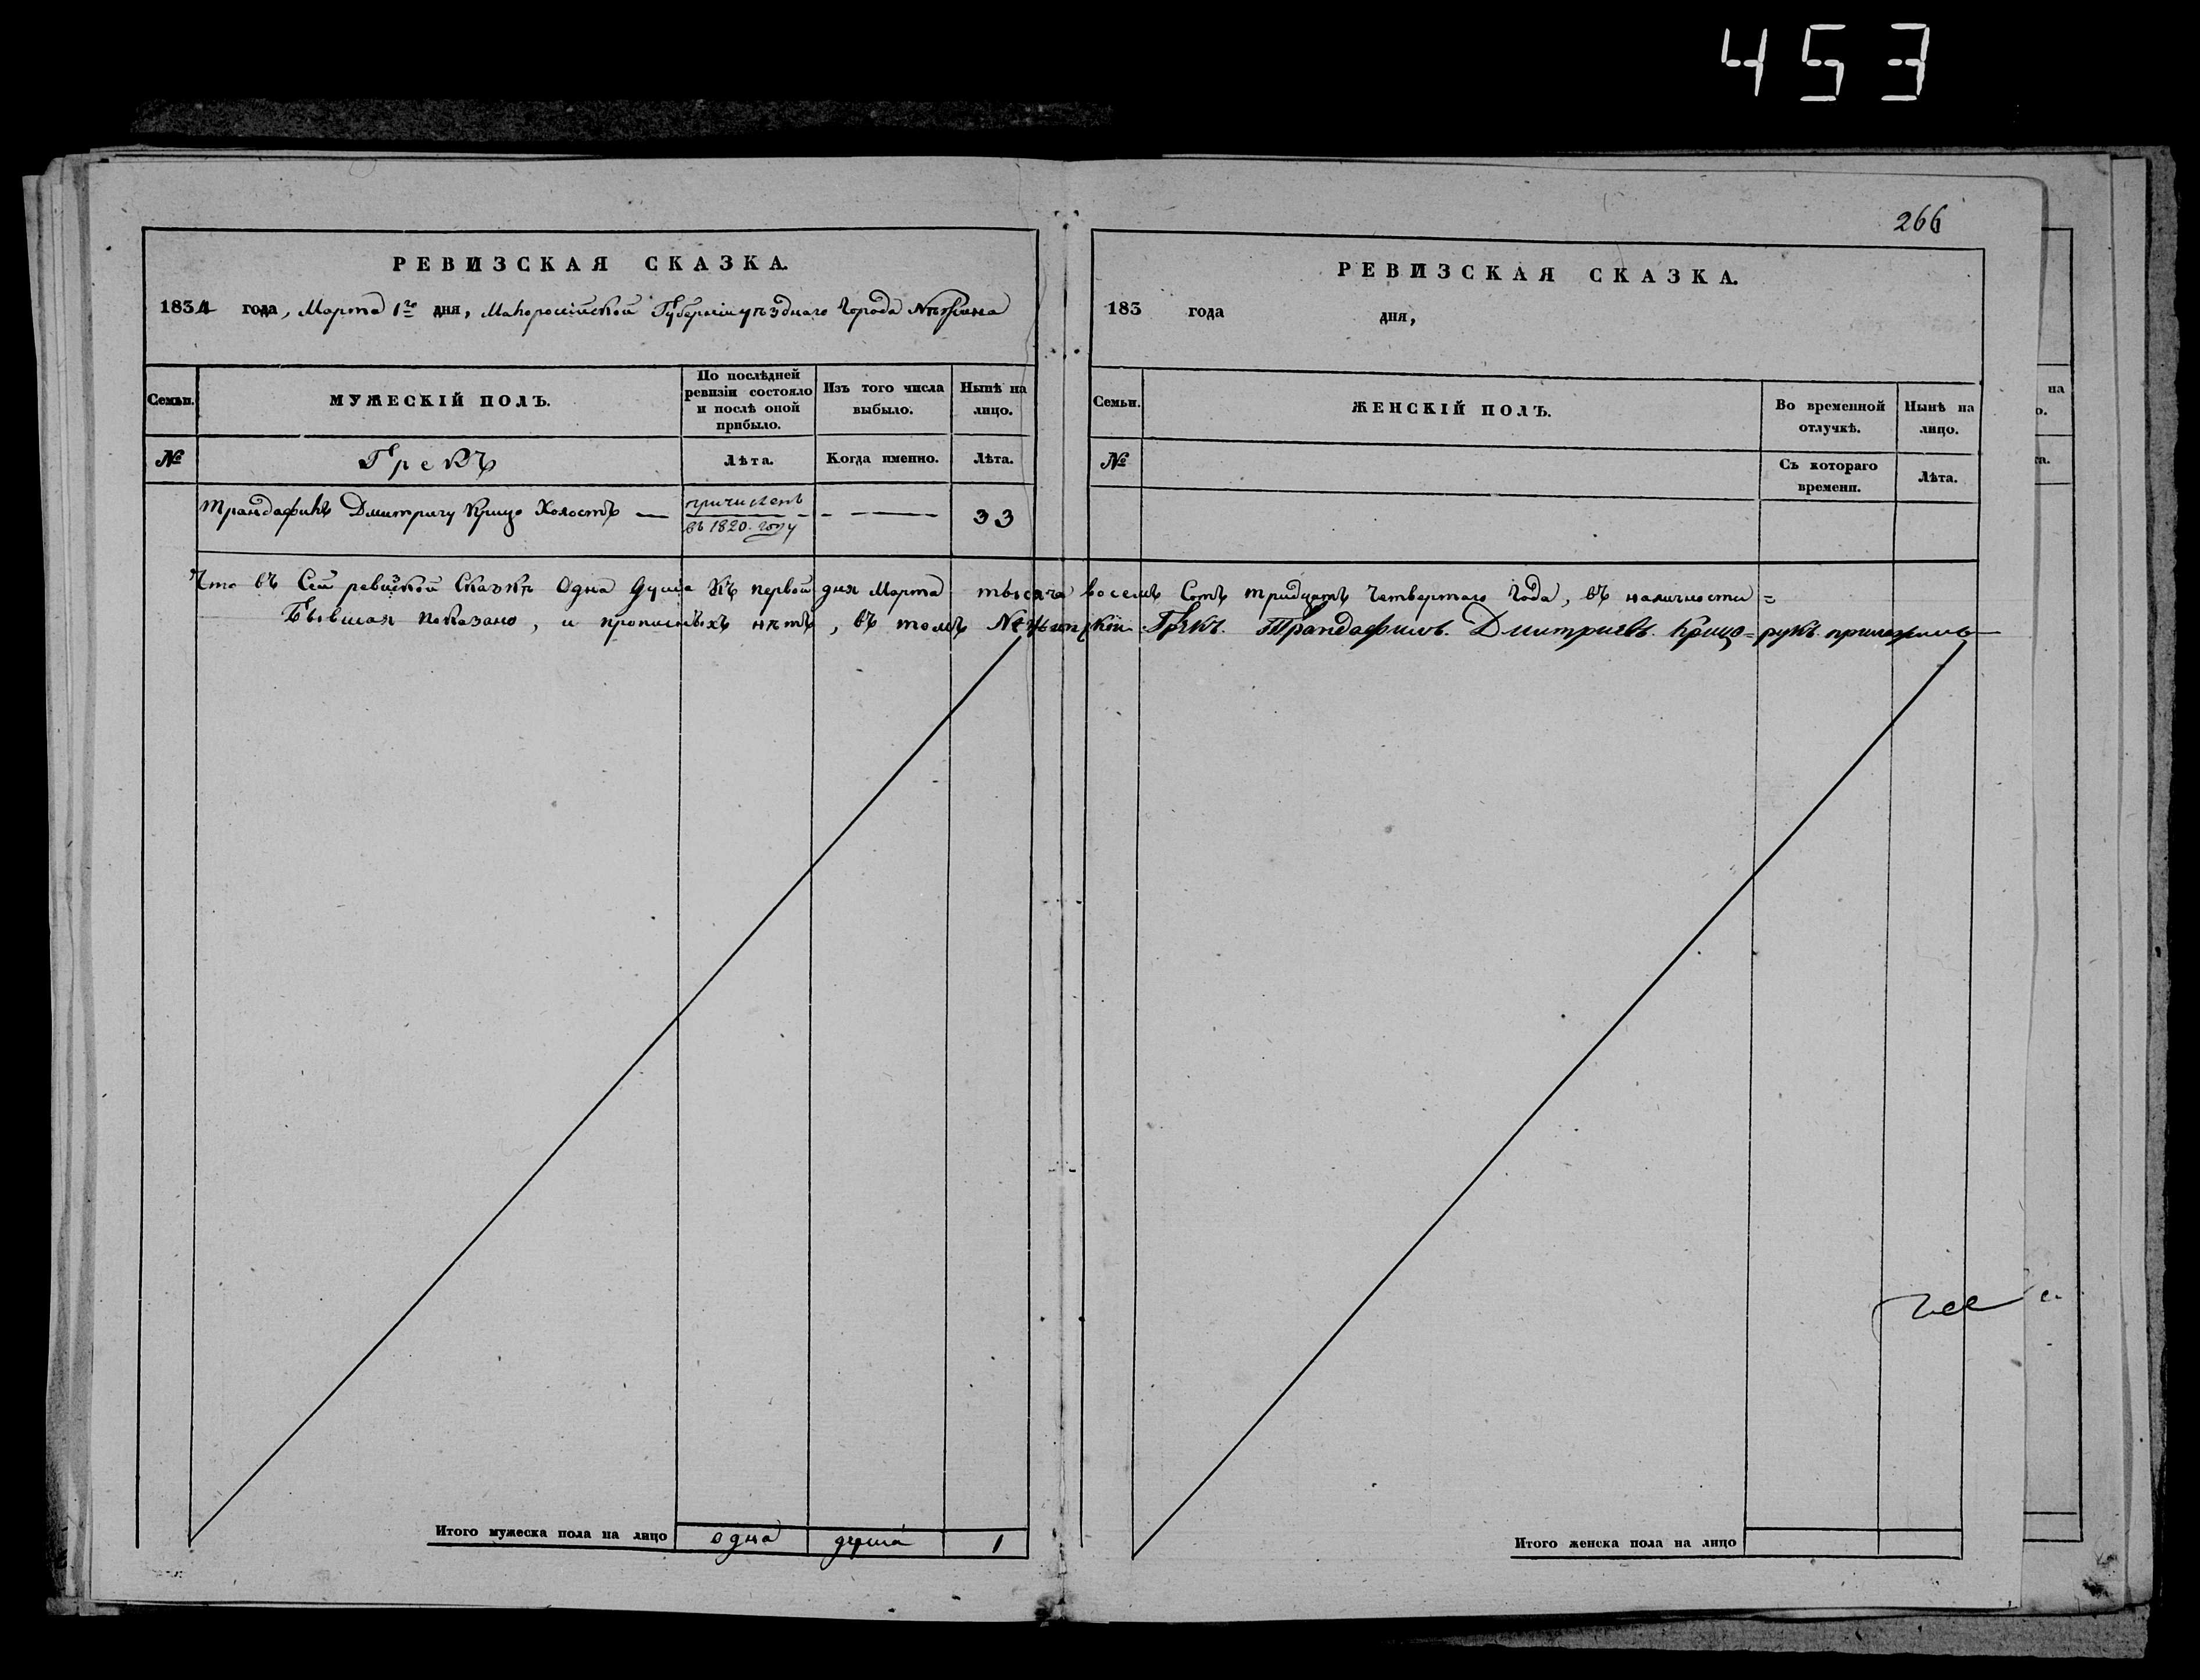 453
266
РЕВИЗСКАЯ СКАЗКА.
1834 года, Марта 1го дня, Малороссійской Губерніи уѣзднаго Города Нѣжина
Семьи. МУЖЕСКІЙ ПОЛЪ. По послѣдней ревизіи состояло и послѣ оной прибыло. Изъ того числа выбыло. Нынѣ на лицо.
№ Грекъ Лѣта. Когда именно. Лѣта.
Трандафилъ Дмитричу Крицо Холостъ — причисленъ въ 1820. году - — 33
РЕВИЗСКАЯ СКАЗКА.
183 года дня,
Семьи. ЖЕНСКІЙ ПОЛЪ. Во временной отлучкѣ. Нынѣ на лицо.
№ Съ котораго времени. Лѣта.
Что въ Сей ревиской Сказкѣ Одна душа Къ первой дня Марта тысяча восемъ Сотъ тридцать Четвертаго Года, въ наличности =
Бывшая показано, и прописныхъ нѣтъ, въ томъ Нежинский Грекъ. Трандафилъ. Дмитриевъ. Крицо = рукъ приложилъ
Итого мужеска пола на лицо одна душа 1
Итого женска пола на лицо
на
о.
та.